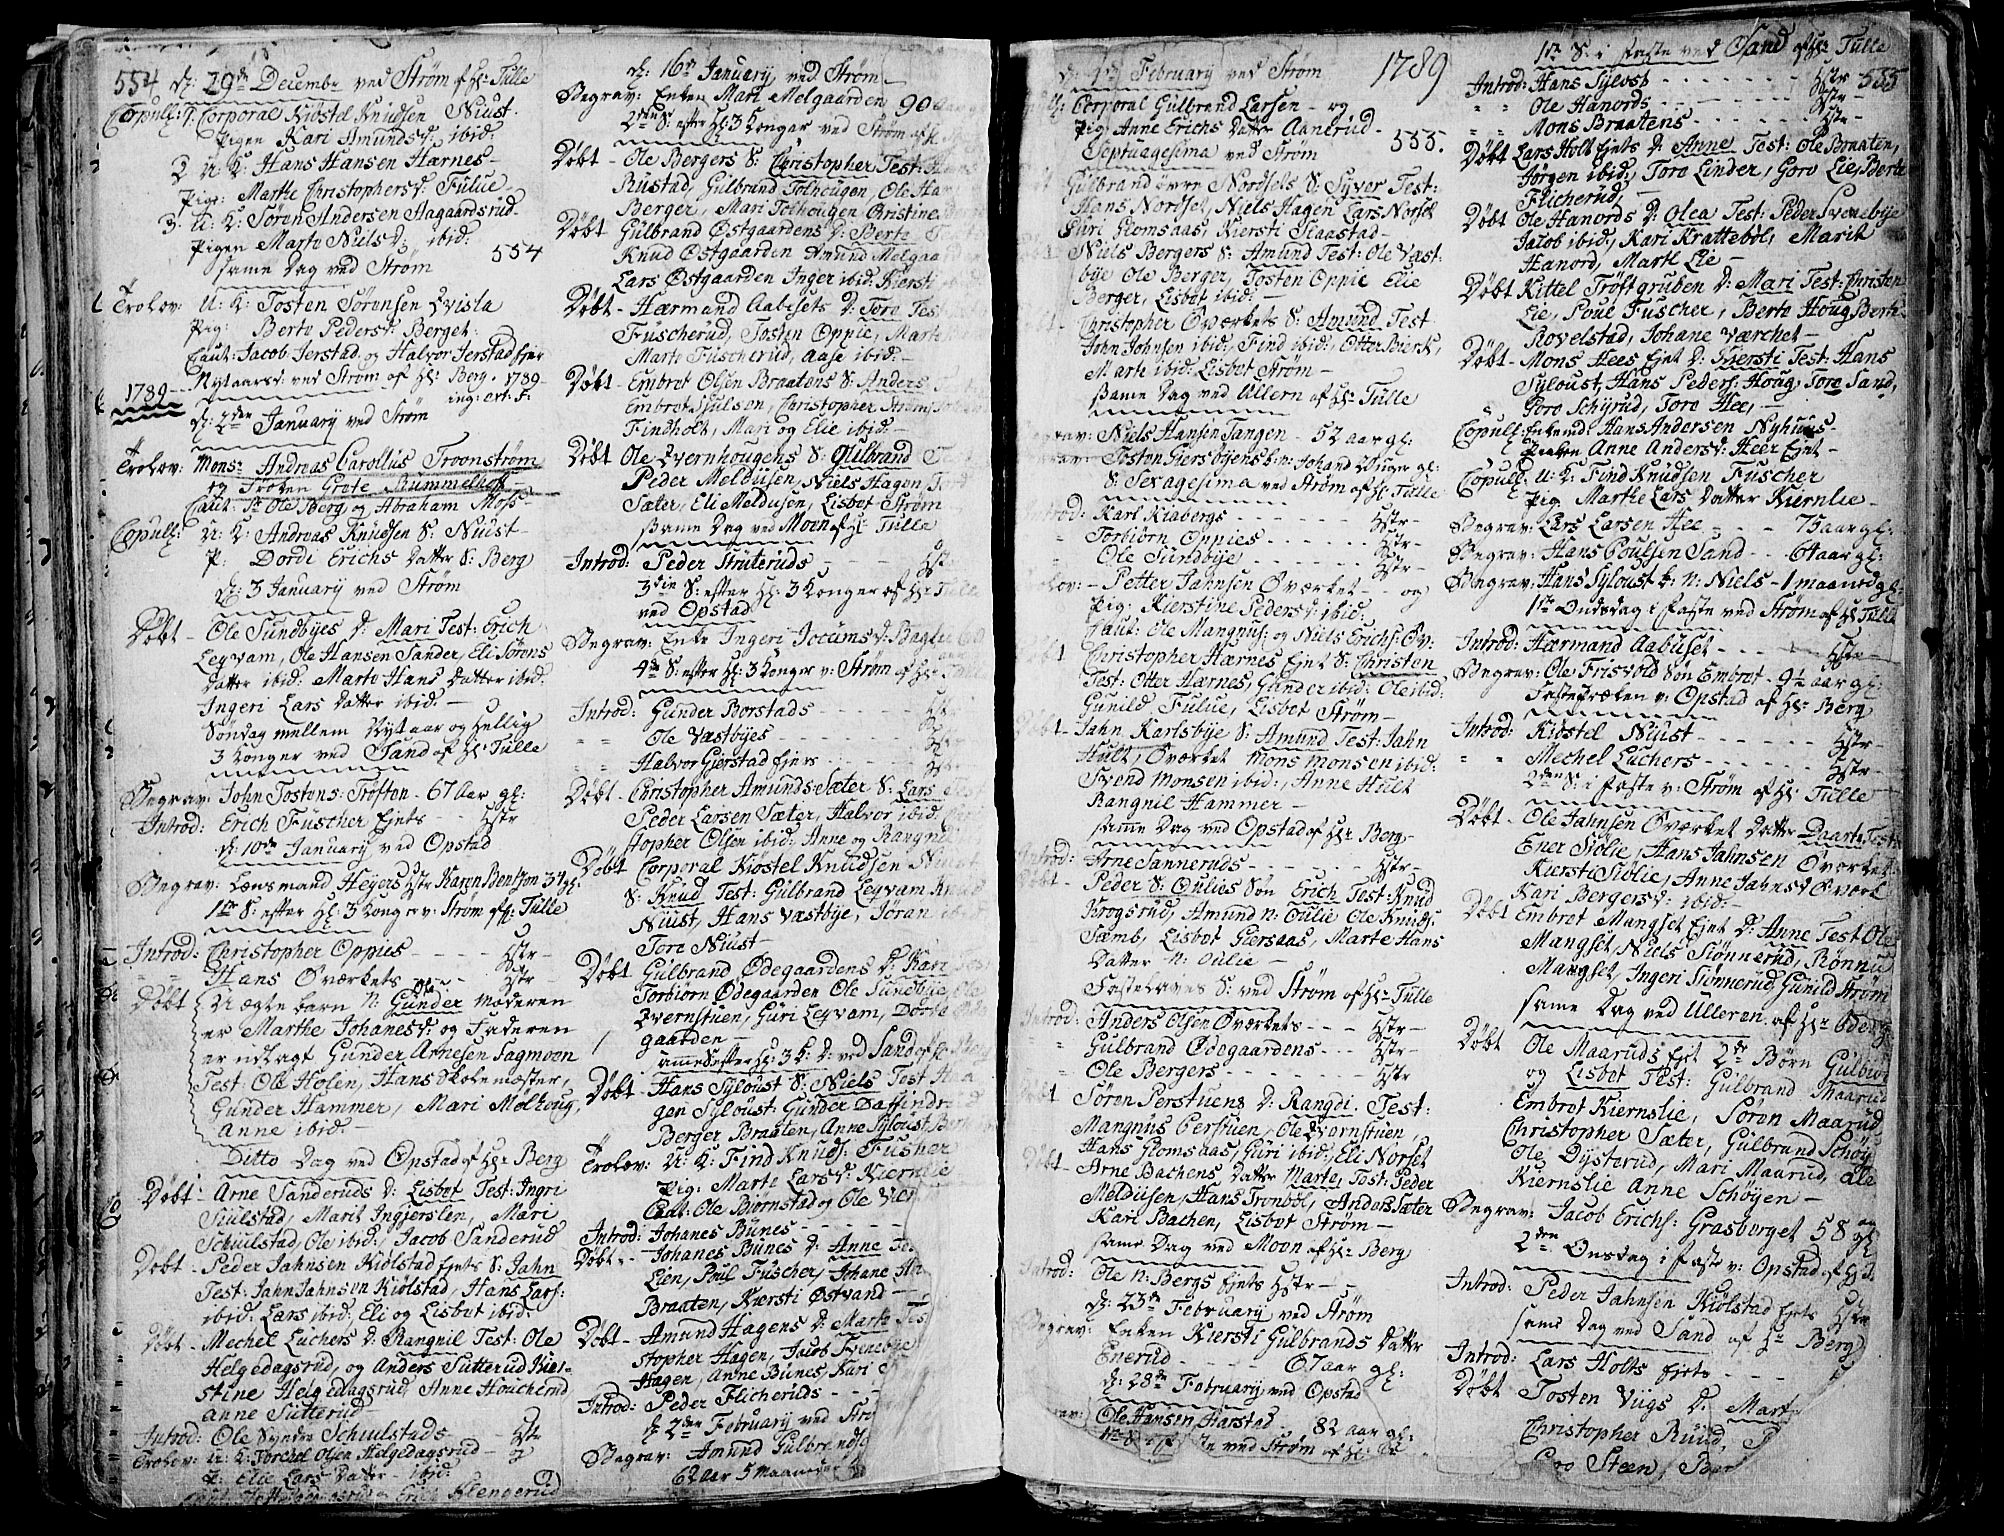 554 d: 29de Decembr ved Strøm af Hr: Tulle
Copul: 1. Corporal Kiøstel Knudsen Niust.
Pigen Kari Amundsd: ibid:
2 U: K: Hans Hansen Harnes -
Pige: Marthe Christophersd: Fulue -
3. U: K: Søren Andersen Aagaardsrud -
Pigen Marte Nielsd: ibid: 554
same Dag ved Strøm
Trolov: U: K: Tosten Sørensen Qvisla
Pig: Berte Pedersd: Berget.
Caut: Jacob Jerstad og Halvor Jerstad Ejer
1789 - Nytaarsd: ved Strøm af Hr: Berg. 1789 -
d: 2den January ved Strøm
Trolov: Mons: Andreas Carollus Troonstrøm
og Frøken Grete Rummelhof -
Caut: Sr Ole Berg og Abraham Moss -
Copul: U: K: Andreas Knudsen S: Niust -
P: Dordi Erichs Datter S: Berg
d: 3 January ved Strøm
Døbt - Ole Sundbyes D: Mari Test: Erich
Leyvam, Ole Hansen Sander, Eli Sørens
Datter ibid: Marte Hans Datter ibid:
Ingeri Lars Datter ibid: -
Søndag mellem Nytaar og Hellig
3 Konger ved Sand af Hr: Tulle
Begrav: John Tostens: Trøften - 67 Aar gl:
Introd: Erich Fuscher Ejets - - Hstr
d: 10de January ved Opstad
Begrav: Lensmand Heyers Hstr Karen Bentzon 34 gl:
1ste S: efter Hl: 3 Konger v: Strøm af Hr: Tulle
Introd: Christopher Oppies - - - - Hstr -
Hans Overkets - - - - Hstr -
Døbt Uægte barn N: Ole Gunder Moderen
er Marthe Johanesd: og Faderen
er udlagt Gunder Arnesen Fagmoen
Test: Ole Holen, Hans Skolemester,
Gunder Hammer, Mari Molhoug,
Anne ibid: -
Ditto Dag ved Opstad af Hr: Berg
Døbt - Arne Sanderuds D: Lisbet Test: Ingri
Siulstad, Marit Ingjerslen, Mari
Schiulstad, Ole ibid:, Jacob Sanderud
Døbt - Peder Jahnsen Kiølstad Ejets S: Jahn
Test: Jahn Jahnsen Kiølstad, Hans Lars:
ibid: Lars ibid: Eli og Lisbet ibid:
Døbt - Mechel Luchers D: Rangnil Test: Ole
Helgedagsrud, og Anders Sutterud Kier-
stine Helgedagsrud, Anne Houcherud
Anne Sutterud -
Introd: Ole Syndre Schiulstads - Hstr
Trolov: U: K: Torchel Olsen Helgedagsrud -
P: Elie Lars Datter - ibid:
Helgedagsrud og Erich Klengerud
d: 16de January ved Strøm -
Begrav: Enken Mari Melgaarden 90 Aar
2den S: efter Hl: 3 Konger ved Strøm af
Døbt - Ole Bergers S: Christopher Test: Hans
Rustad, Gulbrand Tolhougen Ole Har
Berger, Mari Tolhougen Christine
Døbt Gulbrand Østgaardens D: Berte
Knud Østgaarden Amund Melgaarden
Lars Østgaarden Inger ibid: Kiersti
Døbt - Hærmand Aabusets D: Tore Test
Fuscherud, Tosten Oppie, Marte
Marte Fuscherud, Aase ibid: -
Døbt - Embret Olsen Braatens S: Anders
Embret Siulsen, Christopher Strøm
Findholt, Mari og Elie ibid: -
Døbt Ole Evernhougens S: Gulbrand
Peder Meldusen, Niels Hagen
Sæter, Eli Meldusen, Lisbet Strøm
same Dag ved Moen af Hr: Tulle
Introd: Peder Struteruds - - - Hst
3die S: efter Hl: 3 Konger af Hr: Tulle
ved Opstad
Begrav: Enke Ingeri Jocumsd:
4de S: efter Hl: 3 Konger v: Strøm af Hr:
Introd: Gunder Borstads - - - - Hst
Ole Vestbyes - - - - - Hst
Halvor Gierstad Ejers - - - - Hst
Døbt - Christopher Amunds: Sæter S: Lars
Peder Larsen Sæter, Halvor ibid:
stopher Olsen ibid: Anne og Rangnil
Døbt Corporal Kiøstel Knudsen Niust
S: Knud Test: Gulbrand Leyvam Knud
Niust, Hans Vestbye, Jøran
Tore Niust -
Døbt Gulbrand Ødegaardens D: Kari
Torbiørn Ødegaarden Ole Sundbye, Ole
Evernstuen, Guri Leyvam, Dorde
gaarden -
same S: efter Hl: 3 K: D: ved Sand af Hr Berg
Døbt - Hans Syloust S: Niels Test
gen Syloust Gunder Daffindrud
Berger Braaten, Anne Syloust
Trolov: U: K: Find Knuds: Fusher
Pig: Marte Larsd: Kiernlie
Caut: Ole Biørnstad og Ole
Introd: Johanes Bunes - - - -
Døbt - Johanes Bunes D: Anne Tes
Lien, Poul Fuscher, Johane
Braaten, Kiersti Østvand -
Døbt - Amund Hagens D: Marte Tes
stopher Hagen, Jacob Svenebye
Hagen, Anne Bunes, Kari
Introd: Peder Flicheruds - - -
d: 2den February ved Strø
Begrav: Amund Gulbrands
62 Aar 5 Maaneder
February ved Strøm 1789
Corporal Gulbrand Larsen - og
Pig: Anne Erichs Datter Aanerud - 555.
Septuagesima ved Strøm
Gulbrand øvre Nordsets S: Syver Test:
Hans Nordset, Niels Hagen Lars Norset
Guri Glomsaas, Kiersti Slaastad -
Niels Bergers S: Amund Test: Ole Væst-
bye Ole Berger, Tosten Oppie Elie
Berger, Lisbet ibid: -
Christopher Overkets S: Amund Test:
John Johnsen ibid:, Find ibid:, Otter
Marte ibid: Lisbet Strøm -
same Dag ved Ullern af Hr: Tulle
Niels Hansen Tangen - 52 aar gl:
Tosten Giersbyens b: n: Johan 2 Uger gl:
S: Sexagesima ved Strøm af Hr Tulle
Introd: Karl Klabergs - - - - - - Hstr -
Torbiørn Oppies - - - - - Hstr -
Ole Sundbye - - - - - - Hstr -
Petter Jahnsen Overket - - og
Pig: Kierstine Pedersd: ibid:
Caut: Ole Mangnus: og Niels Erichs: Ov:
Christopher Hærnes Ejet S: Christen
Test: Otter Hærnes, Gunder ibid: Ole ibid:
Gunild Fulue, Lisbet Strøm -
Jahn Karlsbye S: Amund Test: Jahn
Hult, Overket Mons Monsen ibid:
Svend Monsen ibid:, Anne Hult
Rangnil Hammer -
same Dag ved Opstad af Hr Berg
Introd: Arne Sanneruds - - - - - Hstr -
Døbt - Peder S: Oulies Søn Erich Test: Knud
Krogsrud, Amund n: Oulie Ole Knuds:
Sæmb, Lisbet Giersaas, Marte Hans
Datter N: Oulie -
Fastelavns S: ved Strøm af Hr: Tulle
Introd: Anders Olsen Overkets - - - Hstr -
Gulbrand Ødegaardens - - - Hstr -
Ole Bergers - - - - - - - - Hstr
Døbt Søren Perstuens D: Rangdi. Test:
Mangnus Perstuen, Ole Evernstuen,
Hans Glomsaas, Guri ibid: Eli Norset
Døbt - Arne Bachens Datter Marte, Test: Peder
Meldusen, Hans Tronbøl, Anders Sæter
Kari Bachen, Lisbet Strøm -
same Dag ved Moen af Hr: Berg
Introd: Ole N: Bergs Ejets Hstr -
d: 23de February ved Strøm
Begrav: Enken Kiersti Gulbrands Datter
Enerud - - - - 67 aar gl:
d: 28de February ved Opstad
Ole Hansen Harstad - 82 aar gl:
ved Strøm af Hr:
1ste S: i Faste ved Sand af Hr: Tulle
Introd: Hans Sylost - - - - - - - - Hstr 555
Ole Hanords - - - - - - - Hstr -
Mons Braatens - - - - - - Hstr -
Døbt Lars Holt Ejets D: Anne Test: Ole Braaten,
Jørgen ibid:, Tore Linder, Goro Lie, Berte
Flicherud -
Døbt Ole Hanords D: Olea Test: Peder Svenebye
Jacob ibid:, Kari Krattebøl, Marit
Hanord, Marte Lie -
Døbt Kittel Trøftgruben D: Mari Test: Christen
Lie, Poul Fuscher, Berte Houg Berte
Rovelstad, Johane Værchet -
Døbt - Mons Hees Ejet D: Kiersti Test: Hans
Syloust, Hans Peders: Houg, Tore Sand,
Goro Schyrud, Tore Hee, -
Copul: Enkemd: Hans Andersen Nyhuus -
Pigen Anne Andersd: Heer Ejet -
Copul: U: K: Find Knudsen Fuscher
Pig Marthe Lars Datter Kiernlie -
Begrav: Lars Larsen Hee - - - 75 aar gl:
Begrav: Hans Poulsen Sand - - 61 aar gl:
Begrav: Hans Syloust b: n: Niels - 1 maaned gl:
1ste Onsdag i Faste ved Strøm af Hr Tulle
Introd: Hærmand Aabuset - - - - Hstr -
Begrav: Ole Frisvold Søn Embret - 9½ aar gl:
Fastepræken v: Opstad af Hr: Berg
Introd: Kiøstel Niust - - - - - - Hstr -
Mechel Luchers - - - - - Hstr -
2den S: i Faste v: Strøm af Hr: Tulle
Døbt - Ole Jahnsen Overket Datter Daarte Test:
Ener Siølie, Hans Jahnsen Overket
Kiersti Siølie, Anne Jahnsd: Overk
Kari Bergersd: ibid: -
Døbt Embret Mangset Ejet D: Anne Test Ole
Mangset, Niels Siønnerud, Rønnu
Mangset, Ingeri Siønnerud, Gunild Strøm
same Dag ved Ulleren af Hr
Døbt Ole Maaruds Ejet 2de Børn Gulbran
og Lisbet Test: Gulbrand Maarud
Embret Kiernslie, Søren Maarud
Christopher Sæter, Gulbrand Schøy
Ole Dysterud, Mari Maarud, Ole
Kiernslie Anne Schøyen -
Begrav: Jacob Erichs: Grasberget 58 aar gl:
2den Onsdag i Faste v: Opstad af Hr:
Introd: Peder Jahnsen Kiølstad Ejets Hstr
same Dag ved Sand af Hr Berg
Introd: Lars Holts Ejets - - -
Døbt Tosten Viigs D: Mart
Christopher Ruud,
Goro Steen, Ber